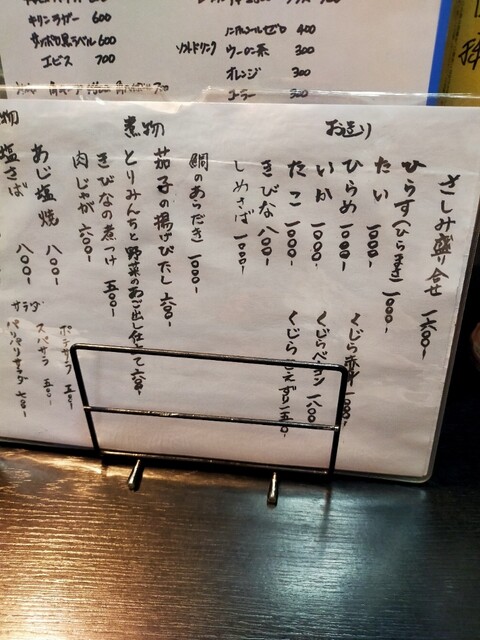 キリンラガー 600
サッポロ黒ラベル 600
エビス 700
ソフトドリンク
ノンアルコールゼロ 400
ウーロン茶 300
オレンジ 300
コーラー 300
お造り
さしみ盛り合せ 一六〇〇-
ひらす(ひらまさ) 一〇〇〇-
たい 一〇〇〇-
ひらめ 一〇〇〇-
いか 一〇〇〇-
たこ 一〇〇〇-
きびな 八〇〇-
しめさば 一〇〇〇-
くじら赤身 一八〇〇-
くじらベーコン 一八〇〇
煮物
鯛のあらだき 一〇〇〇-
茄子の揚げびたし 六〇〇-
とりみんちと野菜のあご出し仕立て 六〇〇-
きびなの煮つけ 五〇〇-
肉じゃが 六〇〇-
物
あじ塩焼 八〇〇-
塩さば 八〇〇-
サラダ
ポテサラ 五〇〇-
スパサラ 五〇〇-
パリパリサラダ 七〇〇-